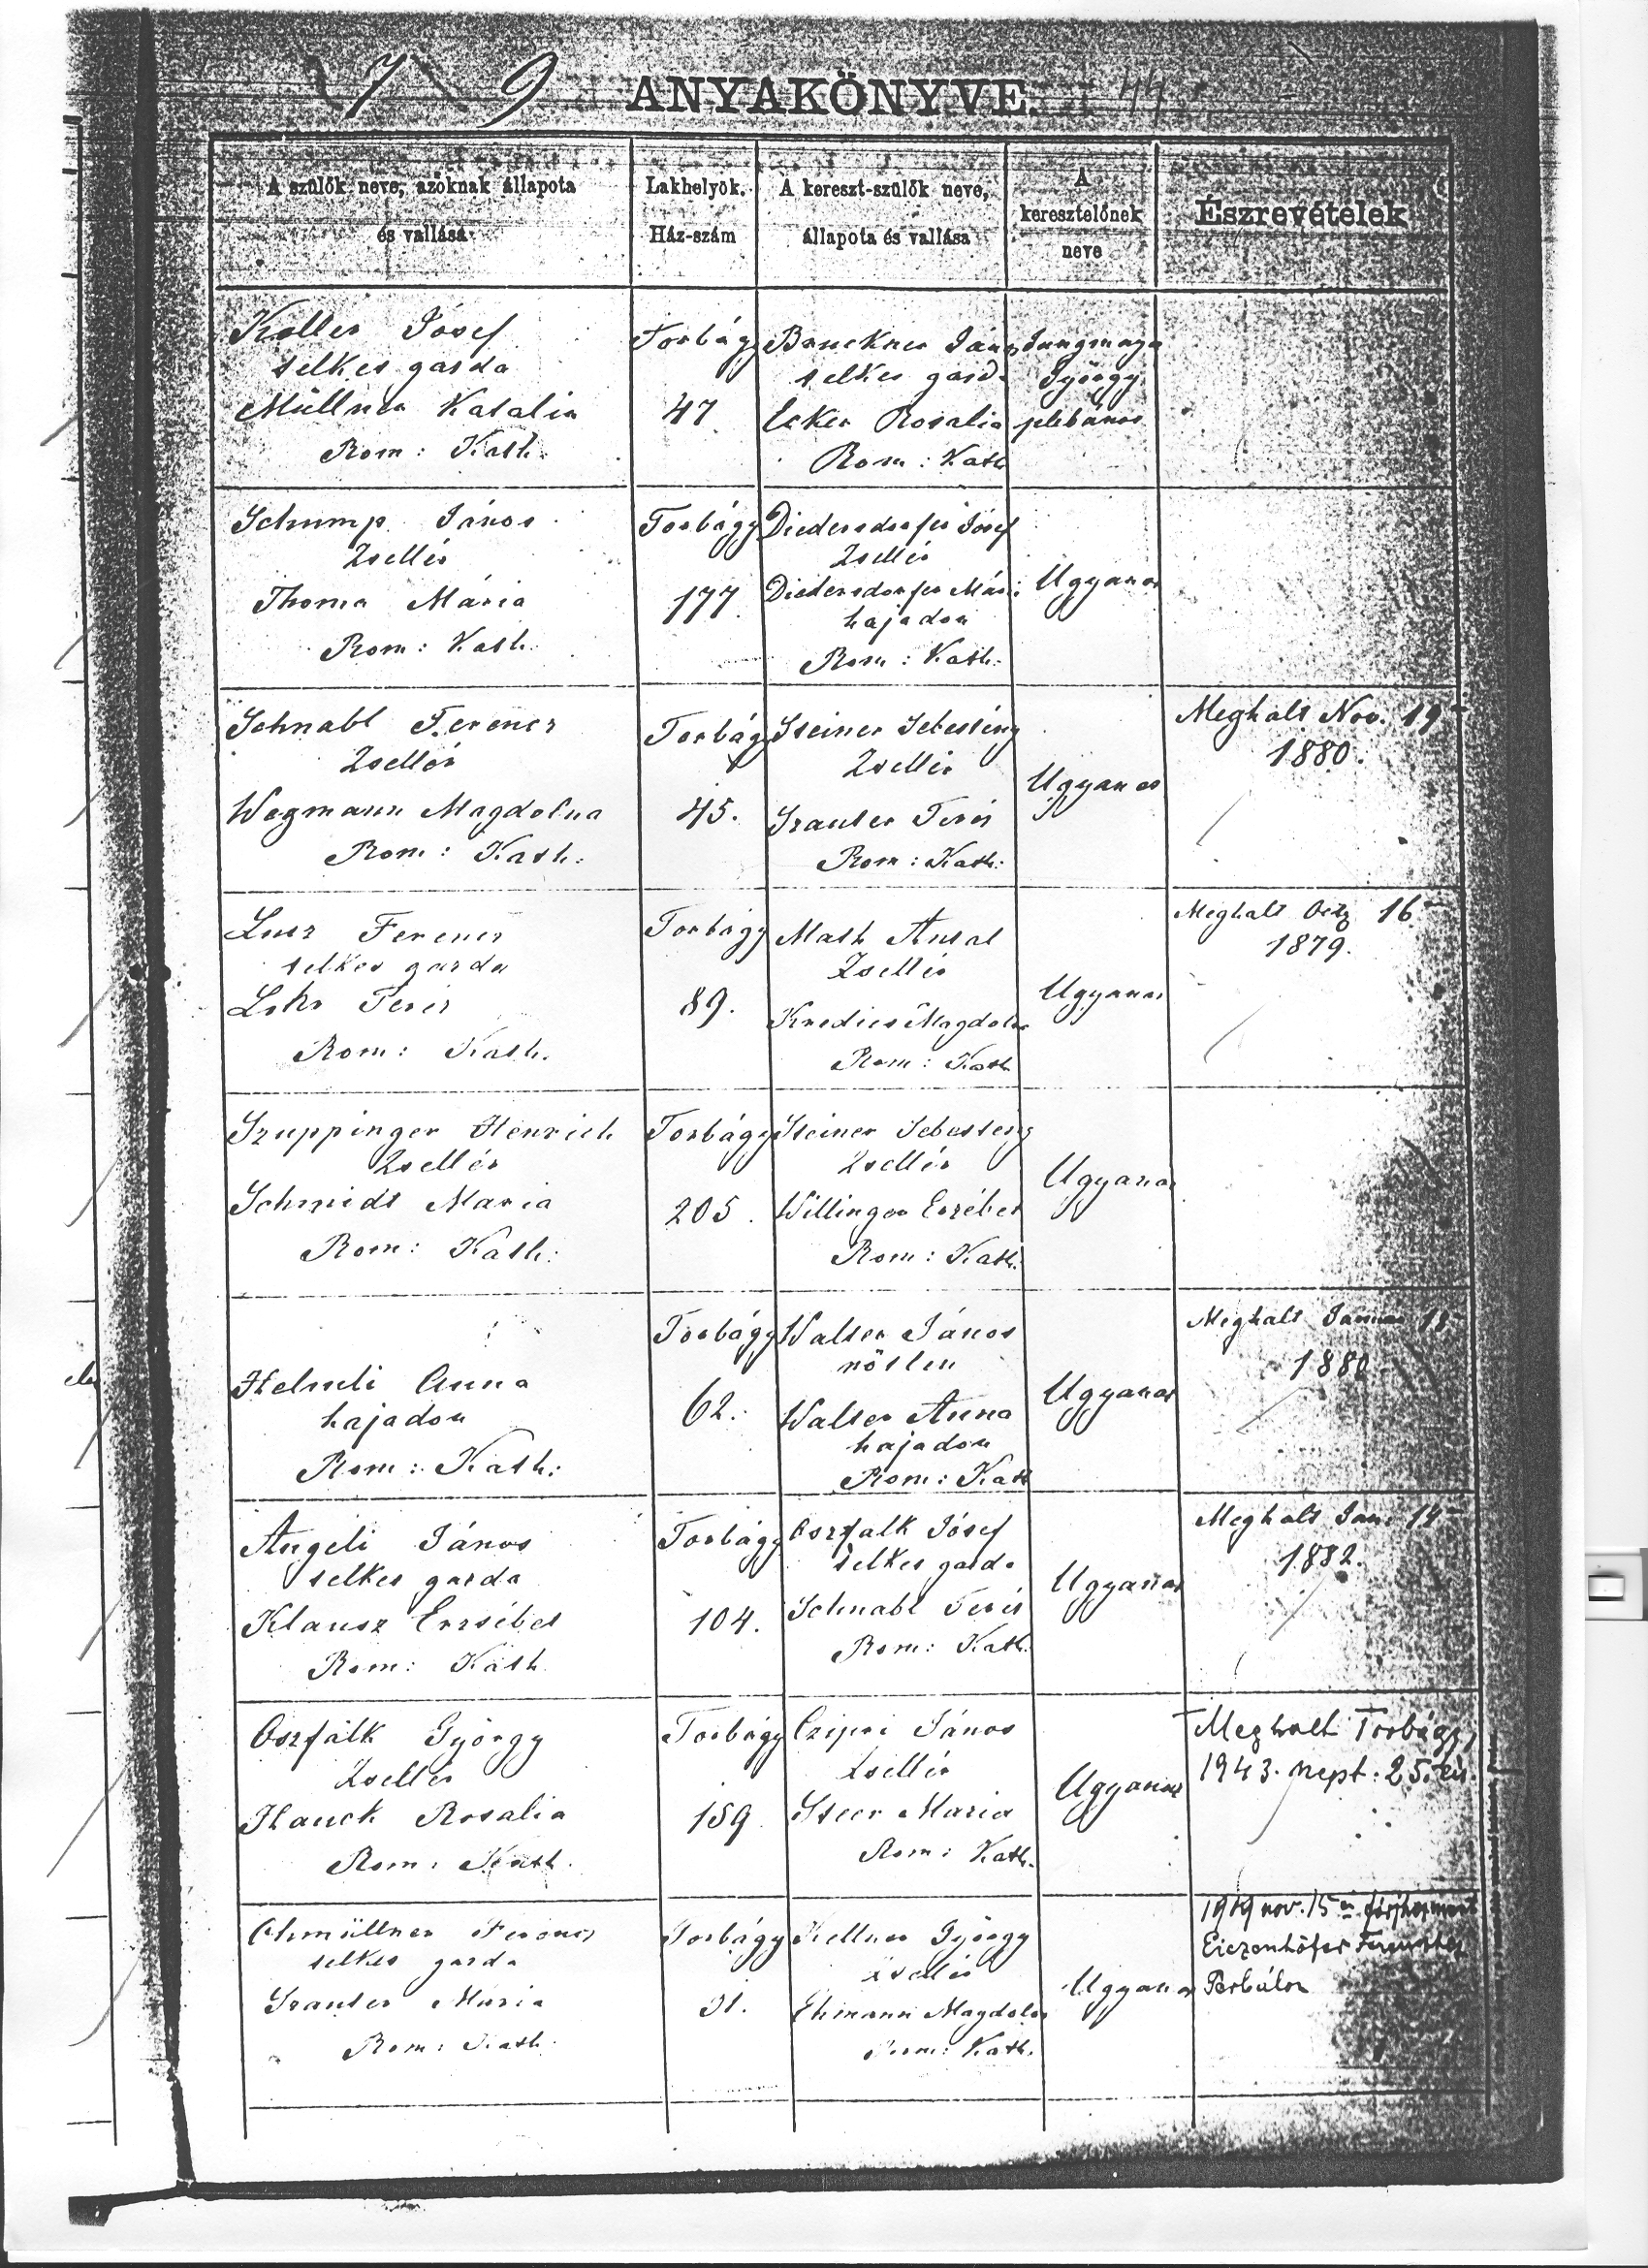 7 9 ANYAKÖNYVE. 44
A szülők neve, azoknak állapota
és vallása
Lakhelyök.
Ház-szám
A kereszt-szülők neve,
állapota és vallása
A
keresztelőnek
neve
Észrevételek
Koller Jósef
telkes gazda
Müllner Katalin
Rom: Kath.
Torbágy
47
Bruckner János
telkes gazda
Ecker Rosalia
Rom: Kath
György
plébános
Schump János
Zsellér
Thoma Mária
Rom: Kath.
Torbágy
177.
Diedersdorfer Jósef
Zsellér
Diedersdorfer Mári
hajadon
Rom: Kath.
Ugyanaz
Schnabl Ferencz
Zsellér
Wegmann Magdolna
Rom: Kath:
Torbágy
45.
Steiner Sebestény
Zsellér
Szauter Teréz
Rom: Kath:
Ugyanaz
Meghalt Nov. 19
1880.
Lusz Ferencz
telkes gazda
Lohr Teréz
Rom: Kath.
Torbágy
89.
Math Antal
Zsellér
Magdolna
Rom: Kath
Ugyanaz
Meghalt 16
1879.
Szuppinger Henrich
Zsellér
Schmidt Maria
Rom: Kath:
Torbágy
205.
Steiner Sebestény
Zsellér
Willinger Erzébet
Rom: Kath.
Ugyanaz
Helmli Anna
hajadon
Rom: Kath:
Torbágy
62.
Walter János
nőtlen
Walter Anna
hajadon
Rom: Kath
Ugyanaz
Meghalt Január 18
1880
Angeli János
telkes gazda
Klausz Erzsébet
Rom: Kath
Torbágy
104.
Oszfalk Jósef
telkes gazda
Schnabl Teréz
Rom: Kath.
Ugyanaz
Meghalt Jan. 14
1882.
Oszfalk György
Zsellér
Hauck Rosalia
Rom: Kath.
Torbágy
159.
Czipri János
Zsellér
Steer Maria
Rom: Kath.
Ugyanaz
Meghalt Torbágy,
1943. szept. 25.-én.
Ohmüllner Ferencz
telkes gazda
Szauter Maria
Rom: Kath.
Torbágy
31.
Kellner György
Zsellér
Ehmann Magdolna
Rom: Kath.
Ugyanaz
1919 nov. 15 én férjhezment
Eiczenhöfer Ferenchez
Perbálon